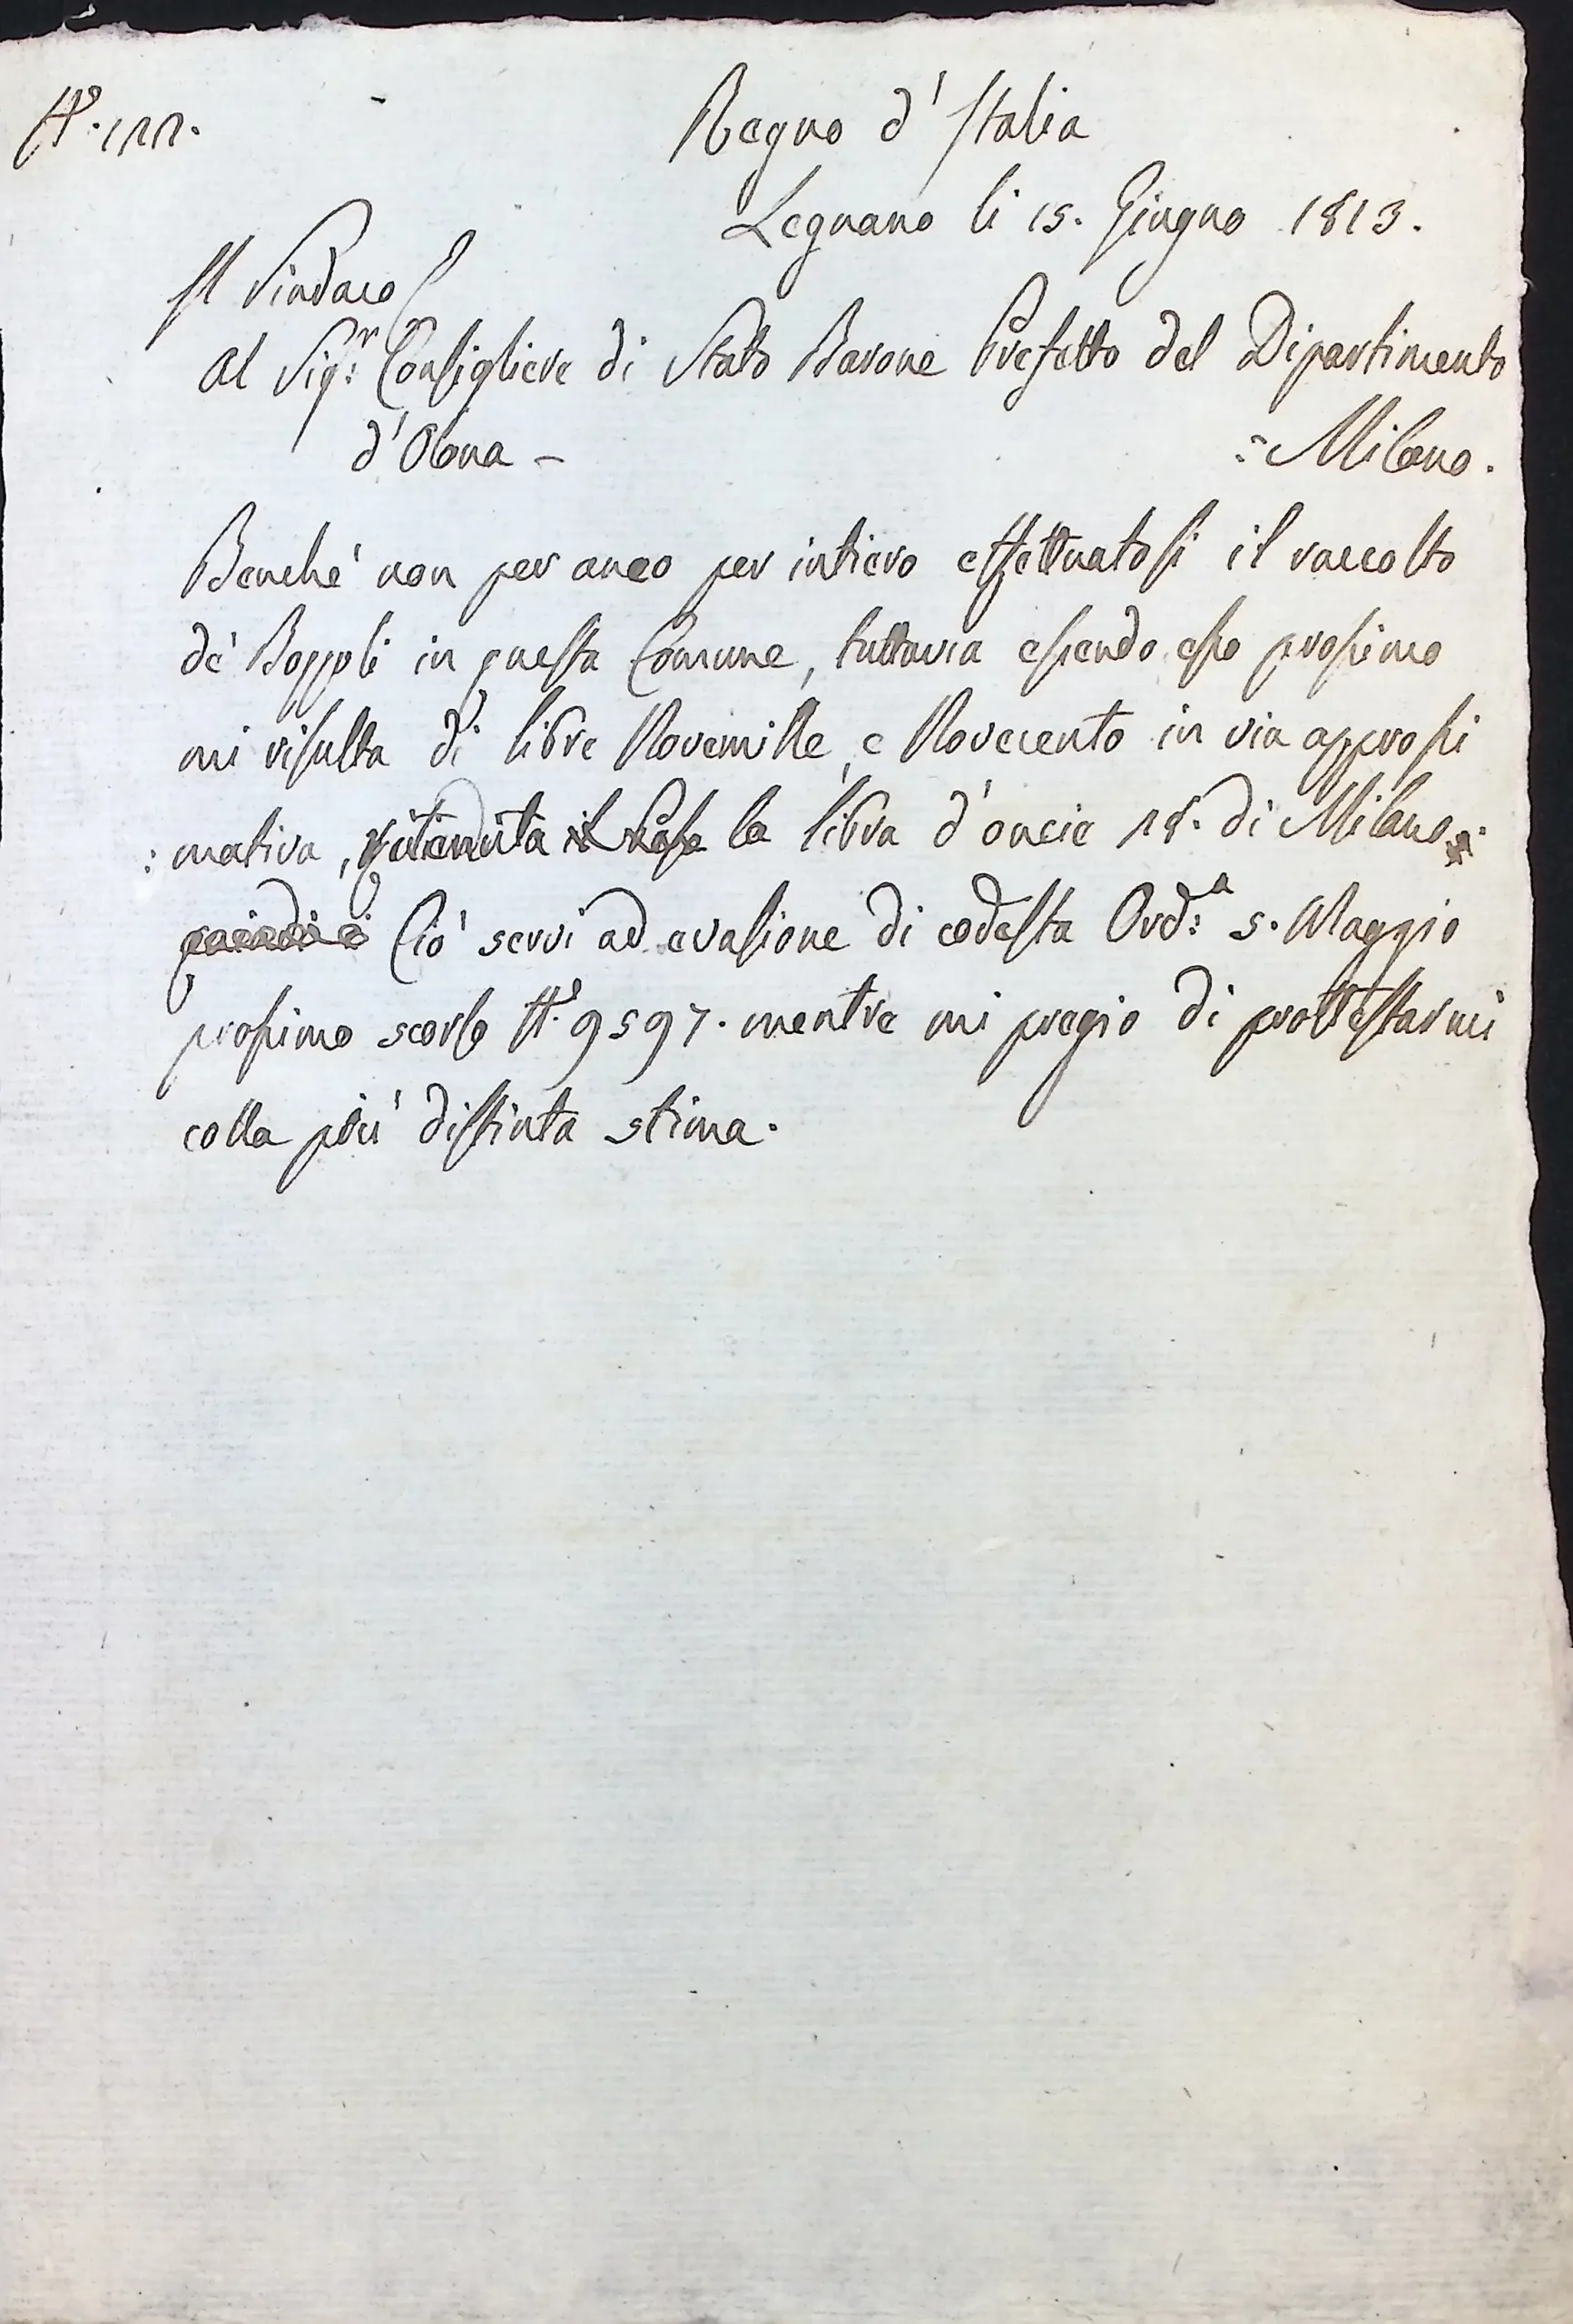 N.° 122.
Regno d'Italia
Legnano li 15. Giugno 1813.
Il Sindaco
Al Sig.r Consigliere di Stato Barone Prefetto del Dipartimento
d'Olona –
:Milano.
Benchè non per anco per intiero effettuatosi il raccolto
de' Boppoli in questa Comune, tuttavia essendo esso prossimo
mi risulta di libre Novemille, e Novecento in via approssi
:mativa, ritenuta la libra d'oncie 28. di Milano.
Ciò servi ad evasione di codesta Ord:a 5. Maggio
prossimo scorso N.° 9597. mentre mi pregio di prottestarmi
colla più distinta stima.